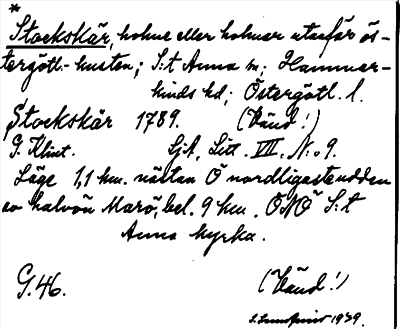 *
Stockskär, holme eller holmar utanför ös-
tergötl.-kusten; S:t Anna sn; Hammar-
kinds hd; Östergötl. l.
Stockskär 1789. (Vänd!)
G. Klint. Sjk, Litt. VII. N:o 9.
Läge 1,1 km. nästan Ö nordligaste udden
av halvön Marö, bel. 9 km. ÖNÖ S:t
Anna kyrka.
G.46. (Vänd!)
1939.